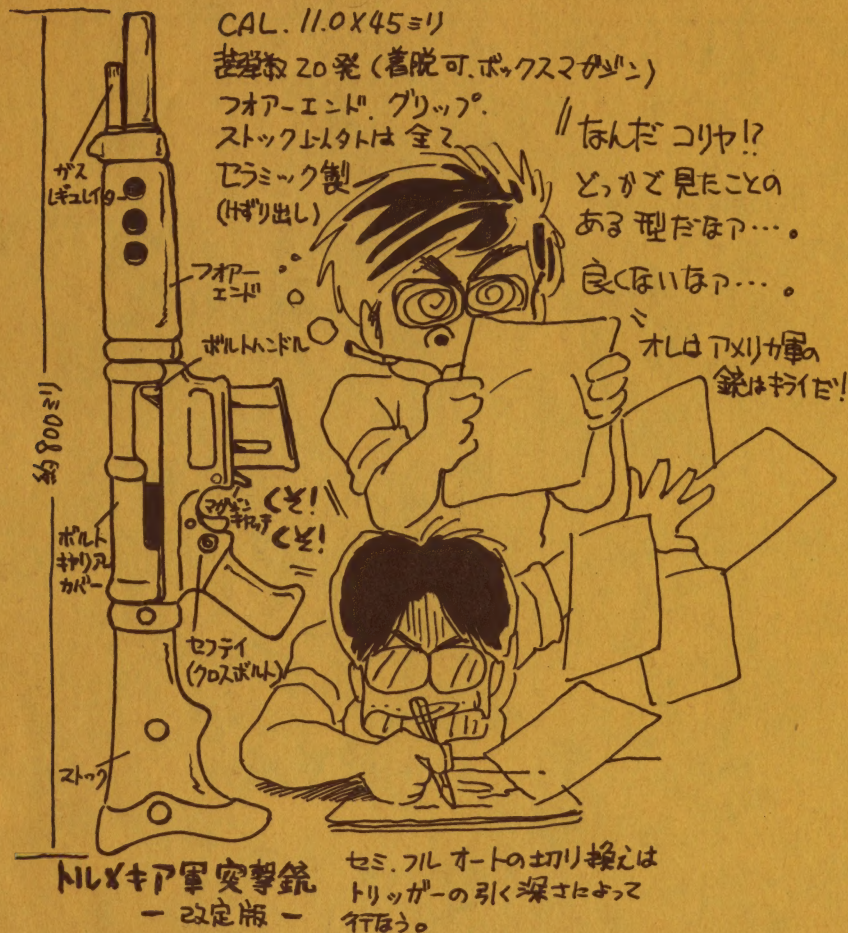 CAL. 11.0X45ミリ
装弾数 20発 (着脱可、ボックスマガジン)
フオアーエンド、グリップ、
ストック以外は全て
セラミック製
(けずり出し)
〃なんだ コリャ!?
どっかで見たことの
ある型だなァ…。
良くないなァ…。〃
オレはアメリカ軍の
銃はキライだ!
ガス
レギュレイター
フオアー
エンド
ボルトハンドル
約800ミリ
マガジン
キャッチ
くそ!
くそ!
ボルト
キャリア
カバー
セフティ
(クロスボルト)
ストック
トルメキア軍突撃銃
— 改定版 —
セミ、フルオートの切り換えは
トリッガーの引く深さによって
行なう。